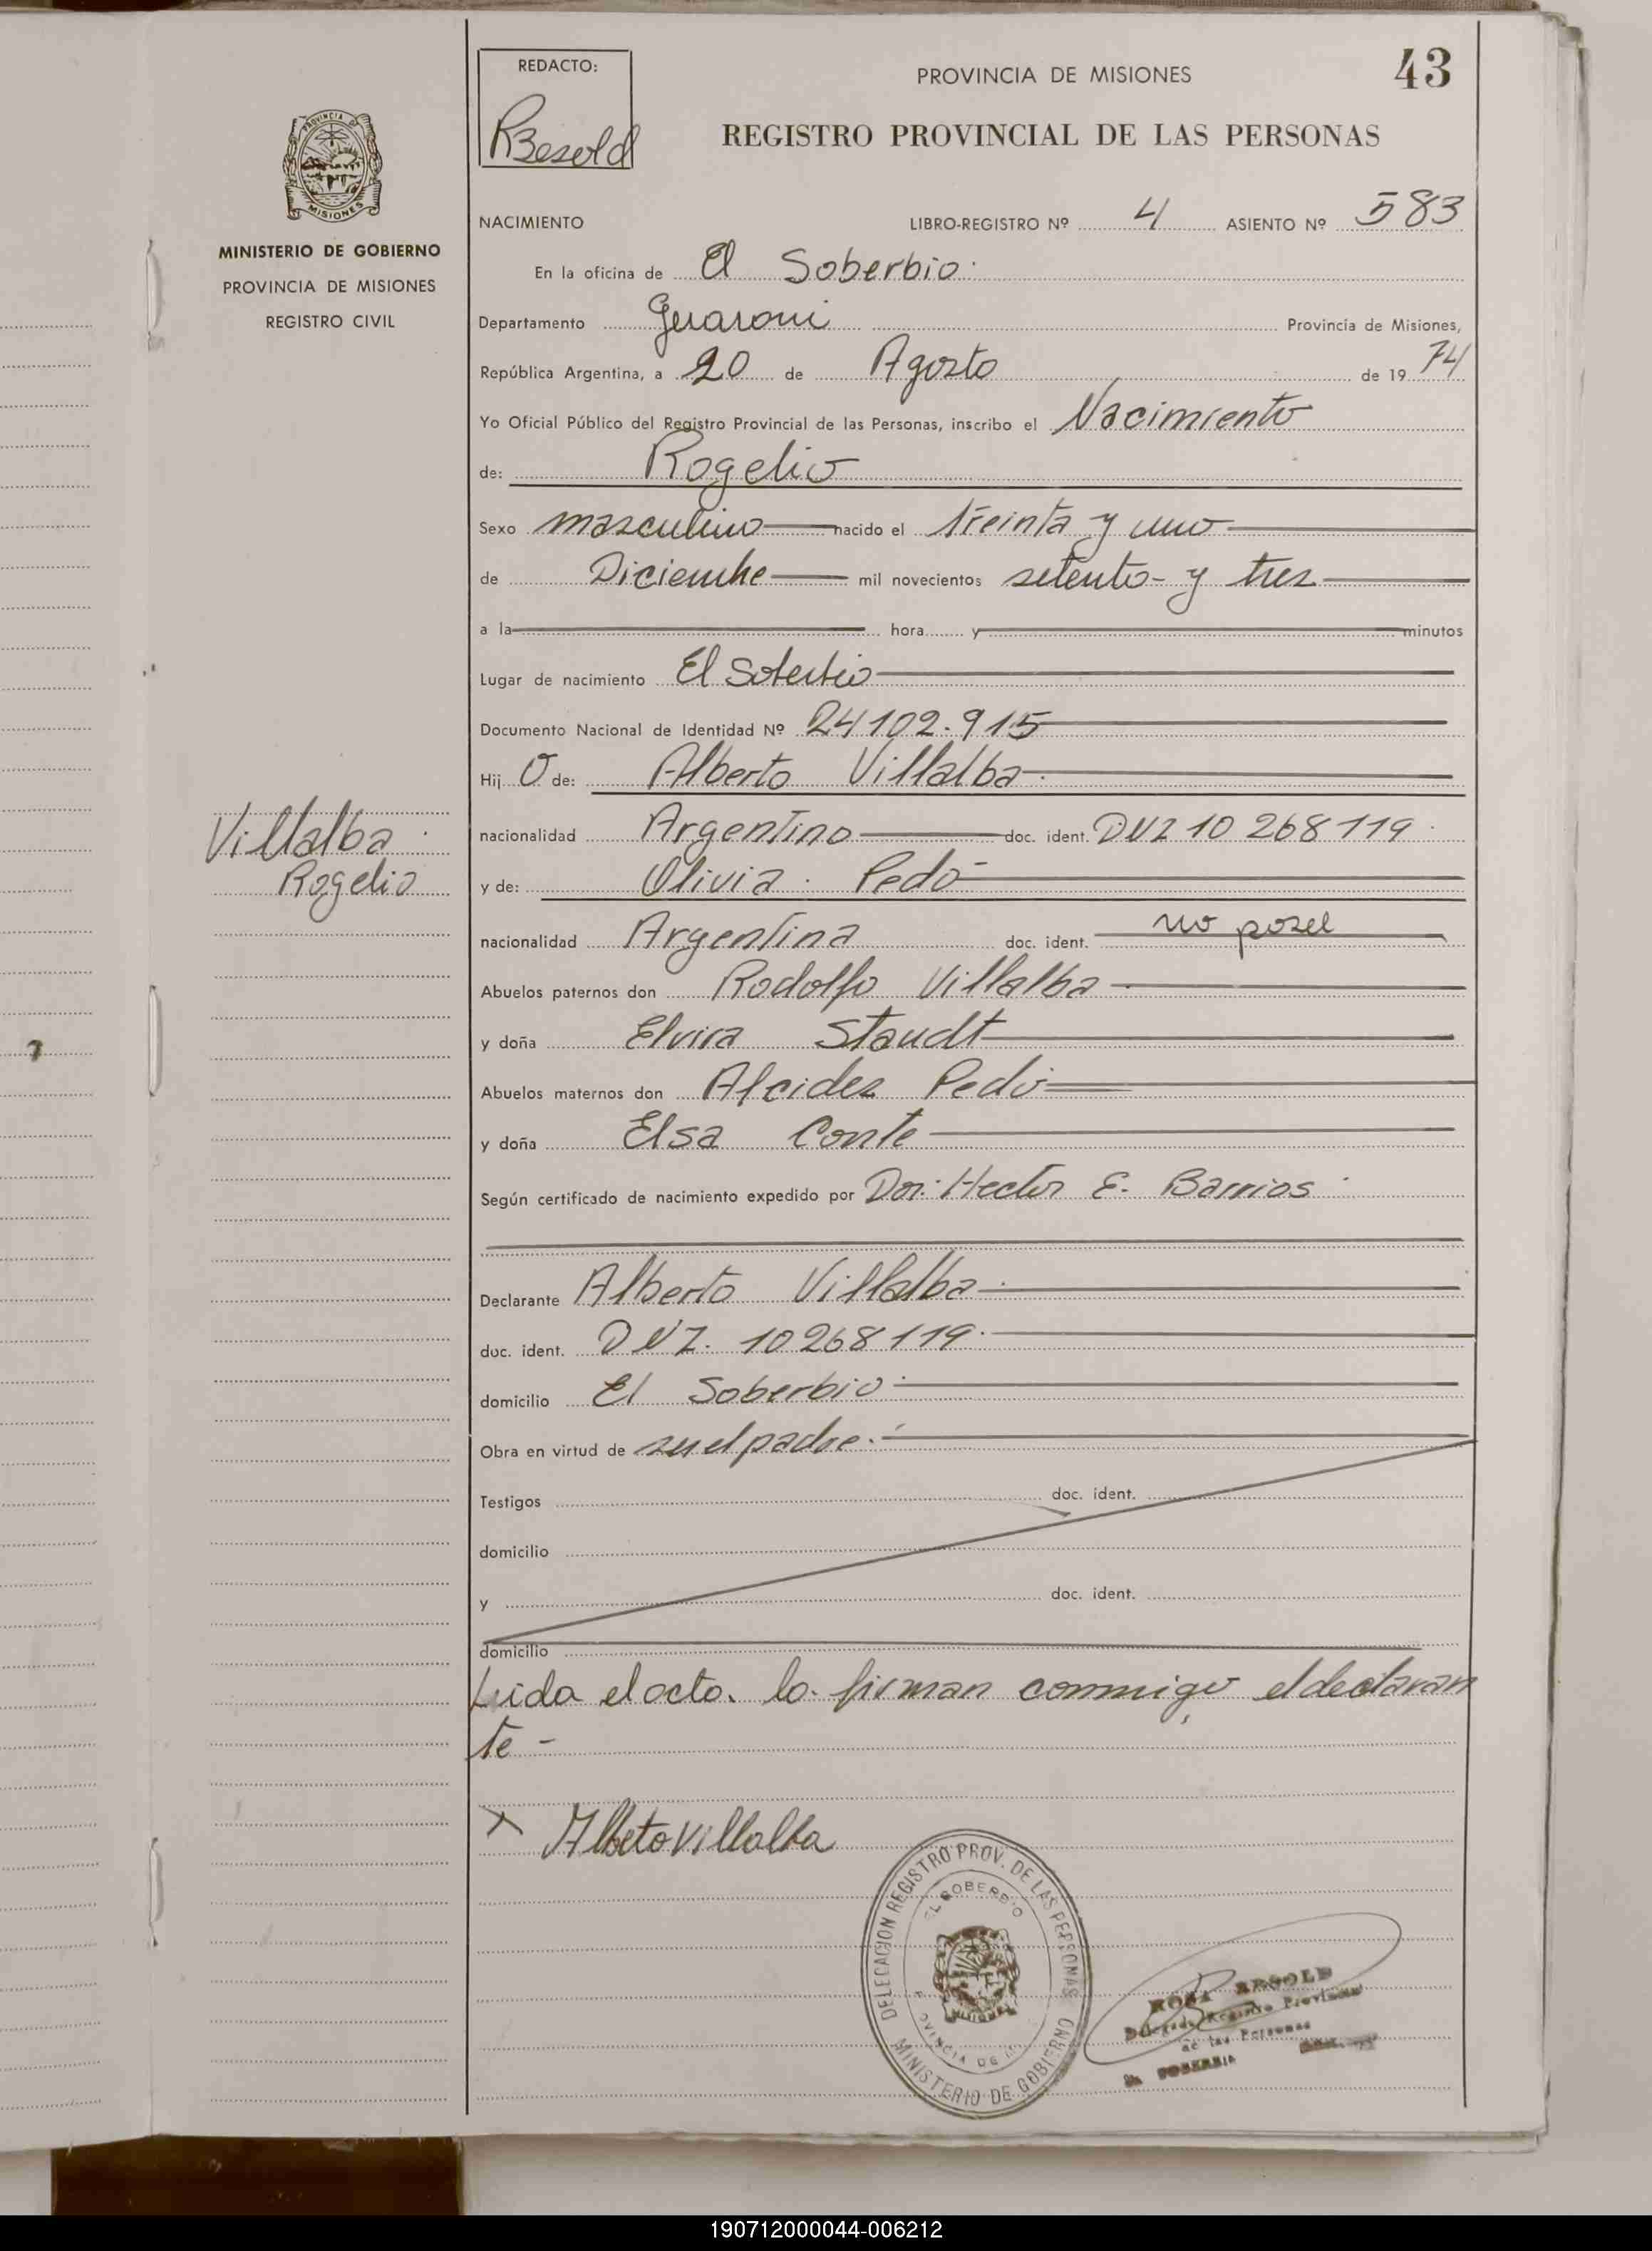 43
REDACTO:
RBesold
PROVINCIA DE MISIONES
REGISTRO PROVINCIAL DE LAS PERSONAS
PROVINCIA DE
MISIONES
MINISTERIO DE GOBIERNO
PROVINCIA DE MISIONES
REGISTRO CIVIL
NACIMIENTO LIBRO-REGISTRO Nº 4 ASIENTO Nº 583
En la oficina de El Soberbio
Departamento Guarani Provincia de Misiones,
República Argentina, a 20 de Agosto de 19 74
Yo Oficial Público del Registro Provincial de las Personas, inscribo el Nacimiento
de: Rogelio
Sexo masculino nacido el treinta y uno
de Diciembre mil novecientos setenta y tres
a la hora y minutos
Lugar de nacimiento El Soberbio
Documento Nacional de Identidad Nº 24102.915
Hij o de: Alberto Villalba
Villalba
Rogelio
nacionalidad Argentino doc. ident. DNI 10 268 119
y de: Olivia Pedó
nacionalidad Argentina doc. ident. no posee
Abuelos paternos don Rodolfo Villalba
y doña Elvira Staudt
Abuelos maternos don Alcides Pedó
y doña Elsa Conte
Según certificado de nacimiento expedido por Dor. Hector E. Barrios
Declarante Alberto Villalba
doc. ident. DNI. 10268119
domicilio El Soberbio
Obra en virtud de ser el padre.
Testigos doc. ident.
domicilio
y doc. ident.
domicilio
Leida el acta. la firman conmigo el declaran
te -
X Albeto Villalba
DELEGACION REGISTRO PROV. DE LAS PERSONAS
EL SOBERBIO
MISIONES
PROVINCIA DE
MINISTERIO DE GOBIERNO
ROSA BESOLD
Delegada Registro Provincial
de las Personas
SOBERBIO
190712000044-006212